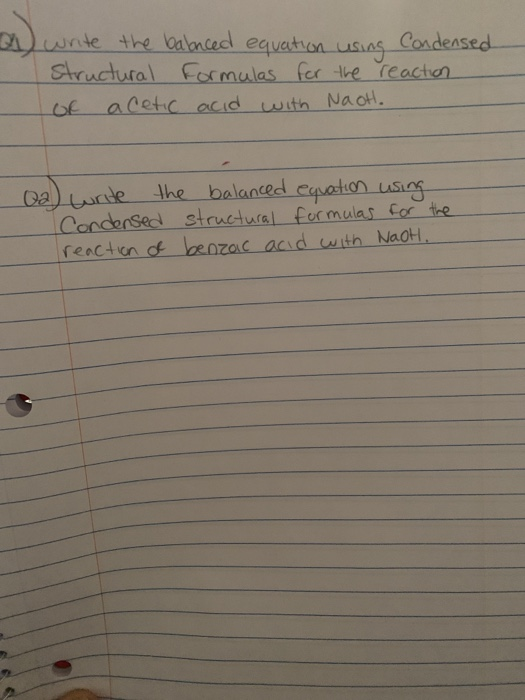 Q1) write the balanced equation using Condensed
Structural Formulas for the reaction
of acetic acid with NaOH.
Q2) write the balanced equation using
Condensed structural formulas for the
reaction of benzoic acid with NaOH.